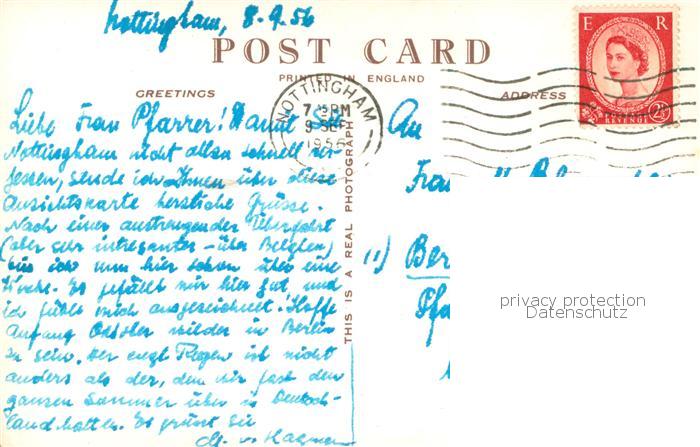 Nottingham, 8.9.56
POST CARD
PRINTED IN ENGLAND
GREETINGS
ADDRESS
E R
REVENUE
2½
NOTTINGHAM
7 PM
9 SEP
1956
THIS IS A REAL PHOTOGRAPH
Liebe Frau Pfarrer! Damit Sie
Nottingham nicht allzu schnell ver-
gessen, sende ich Ihnen über diese
Ansichtskarte herzliche Grüsse.
Nach einer anstrengender Überfahrt
(aber sehr intresanter - über Belgien)
bin ich nun hier schon über eine
Woche. Es gefällt mir hier gut und
ich fühle mich ausgezeichnet! Hoffe
Anfang Oktober wieder in Berlin
zu sein. Der engl. Regen ist nicht
anders als der, den wir fast den
ganzen Sommer über in Deutsch-
land hatten. Es grüsst Sie
An
Frau
11) Ber
Pfa
privacy protection
Datenschutz